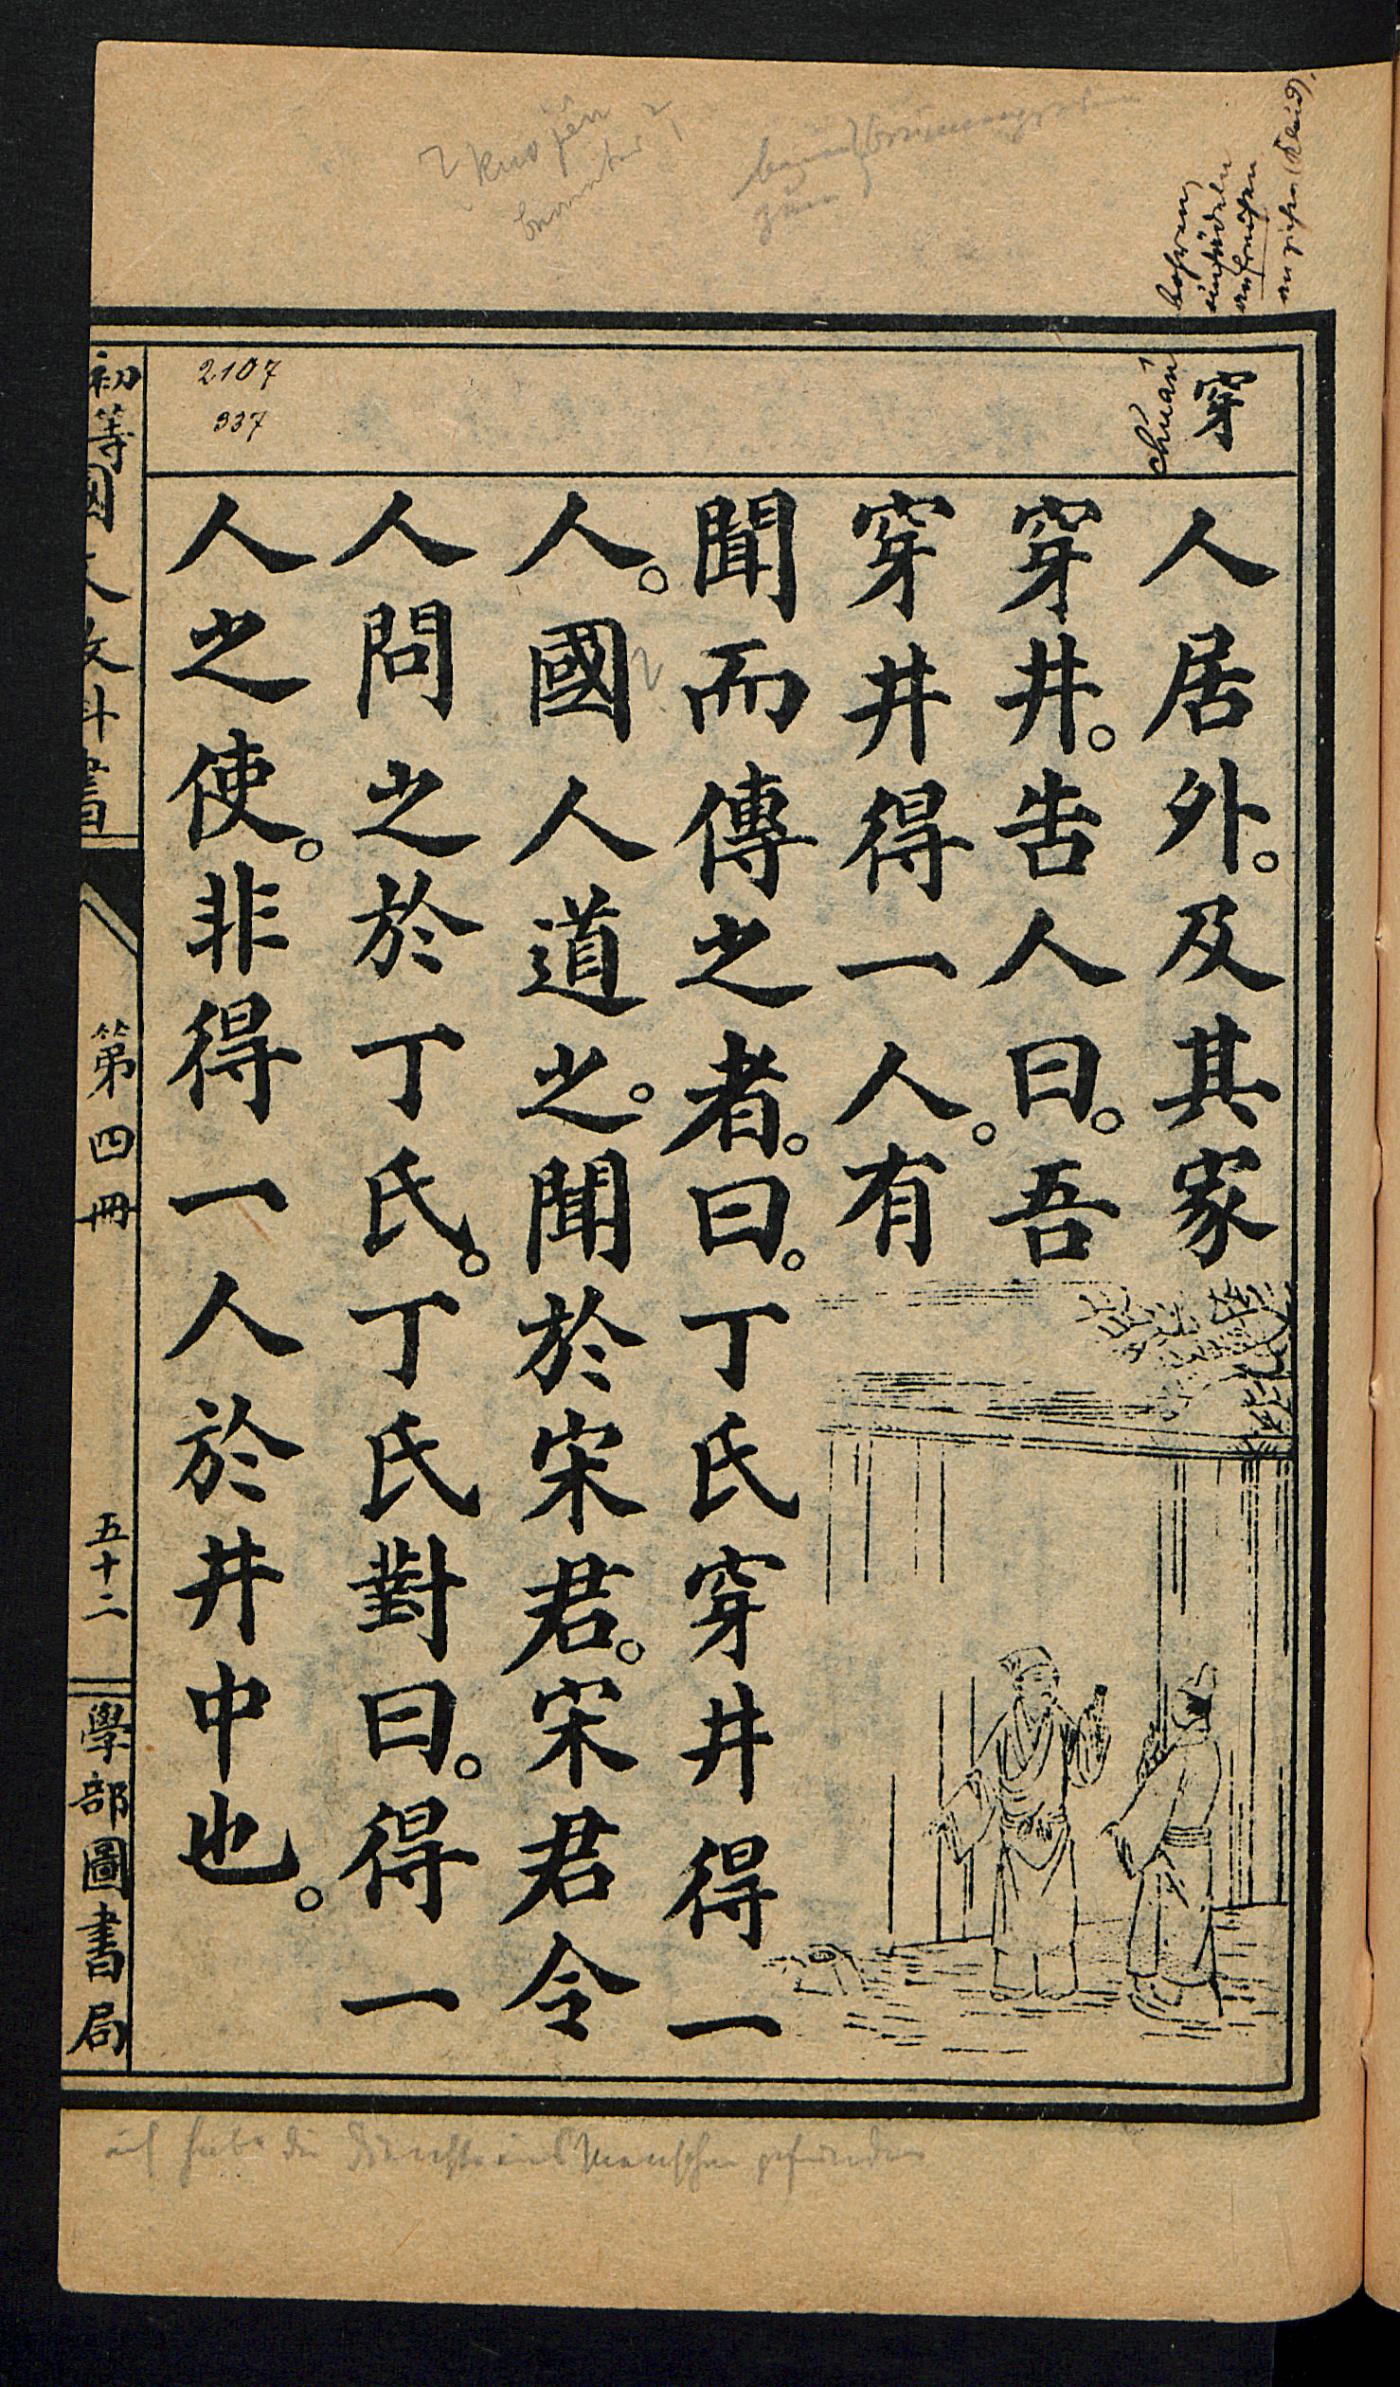 穿
chuan
2107
937
人居外。及其家
穿井。告人曰。吾
穿井得一人。有
聞而傳之者。曰。丁氏穿井得一
人。國人道之。聞於宋君。宋君令
人問之於丁氏。丁氏對曰。得一
人之使。非得一人於井中也。
初等國文教科書
第四冊
五十二
學部圖書局